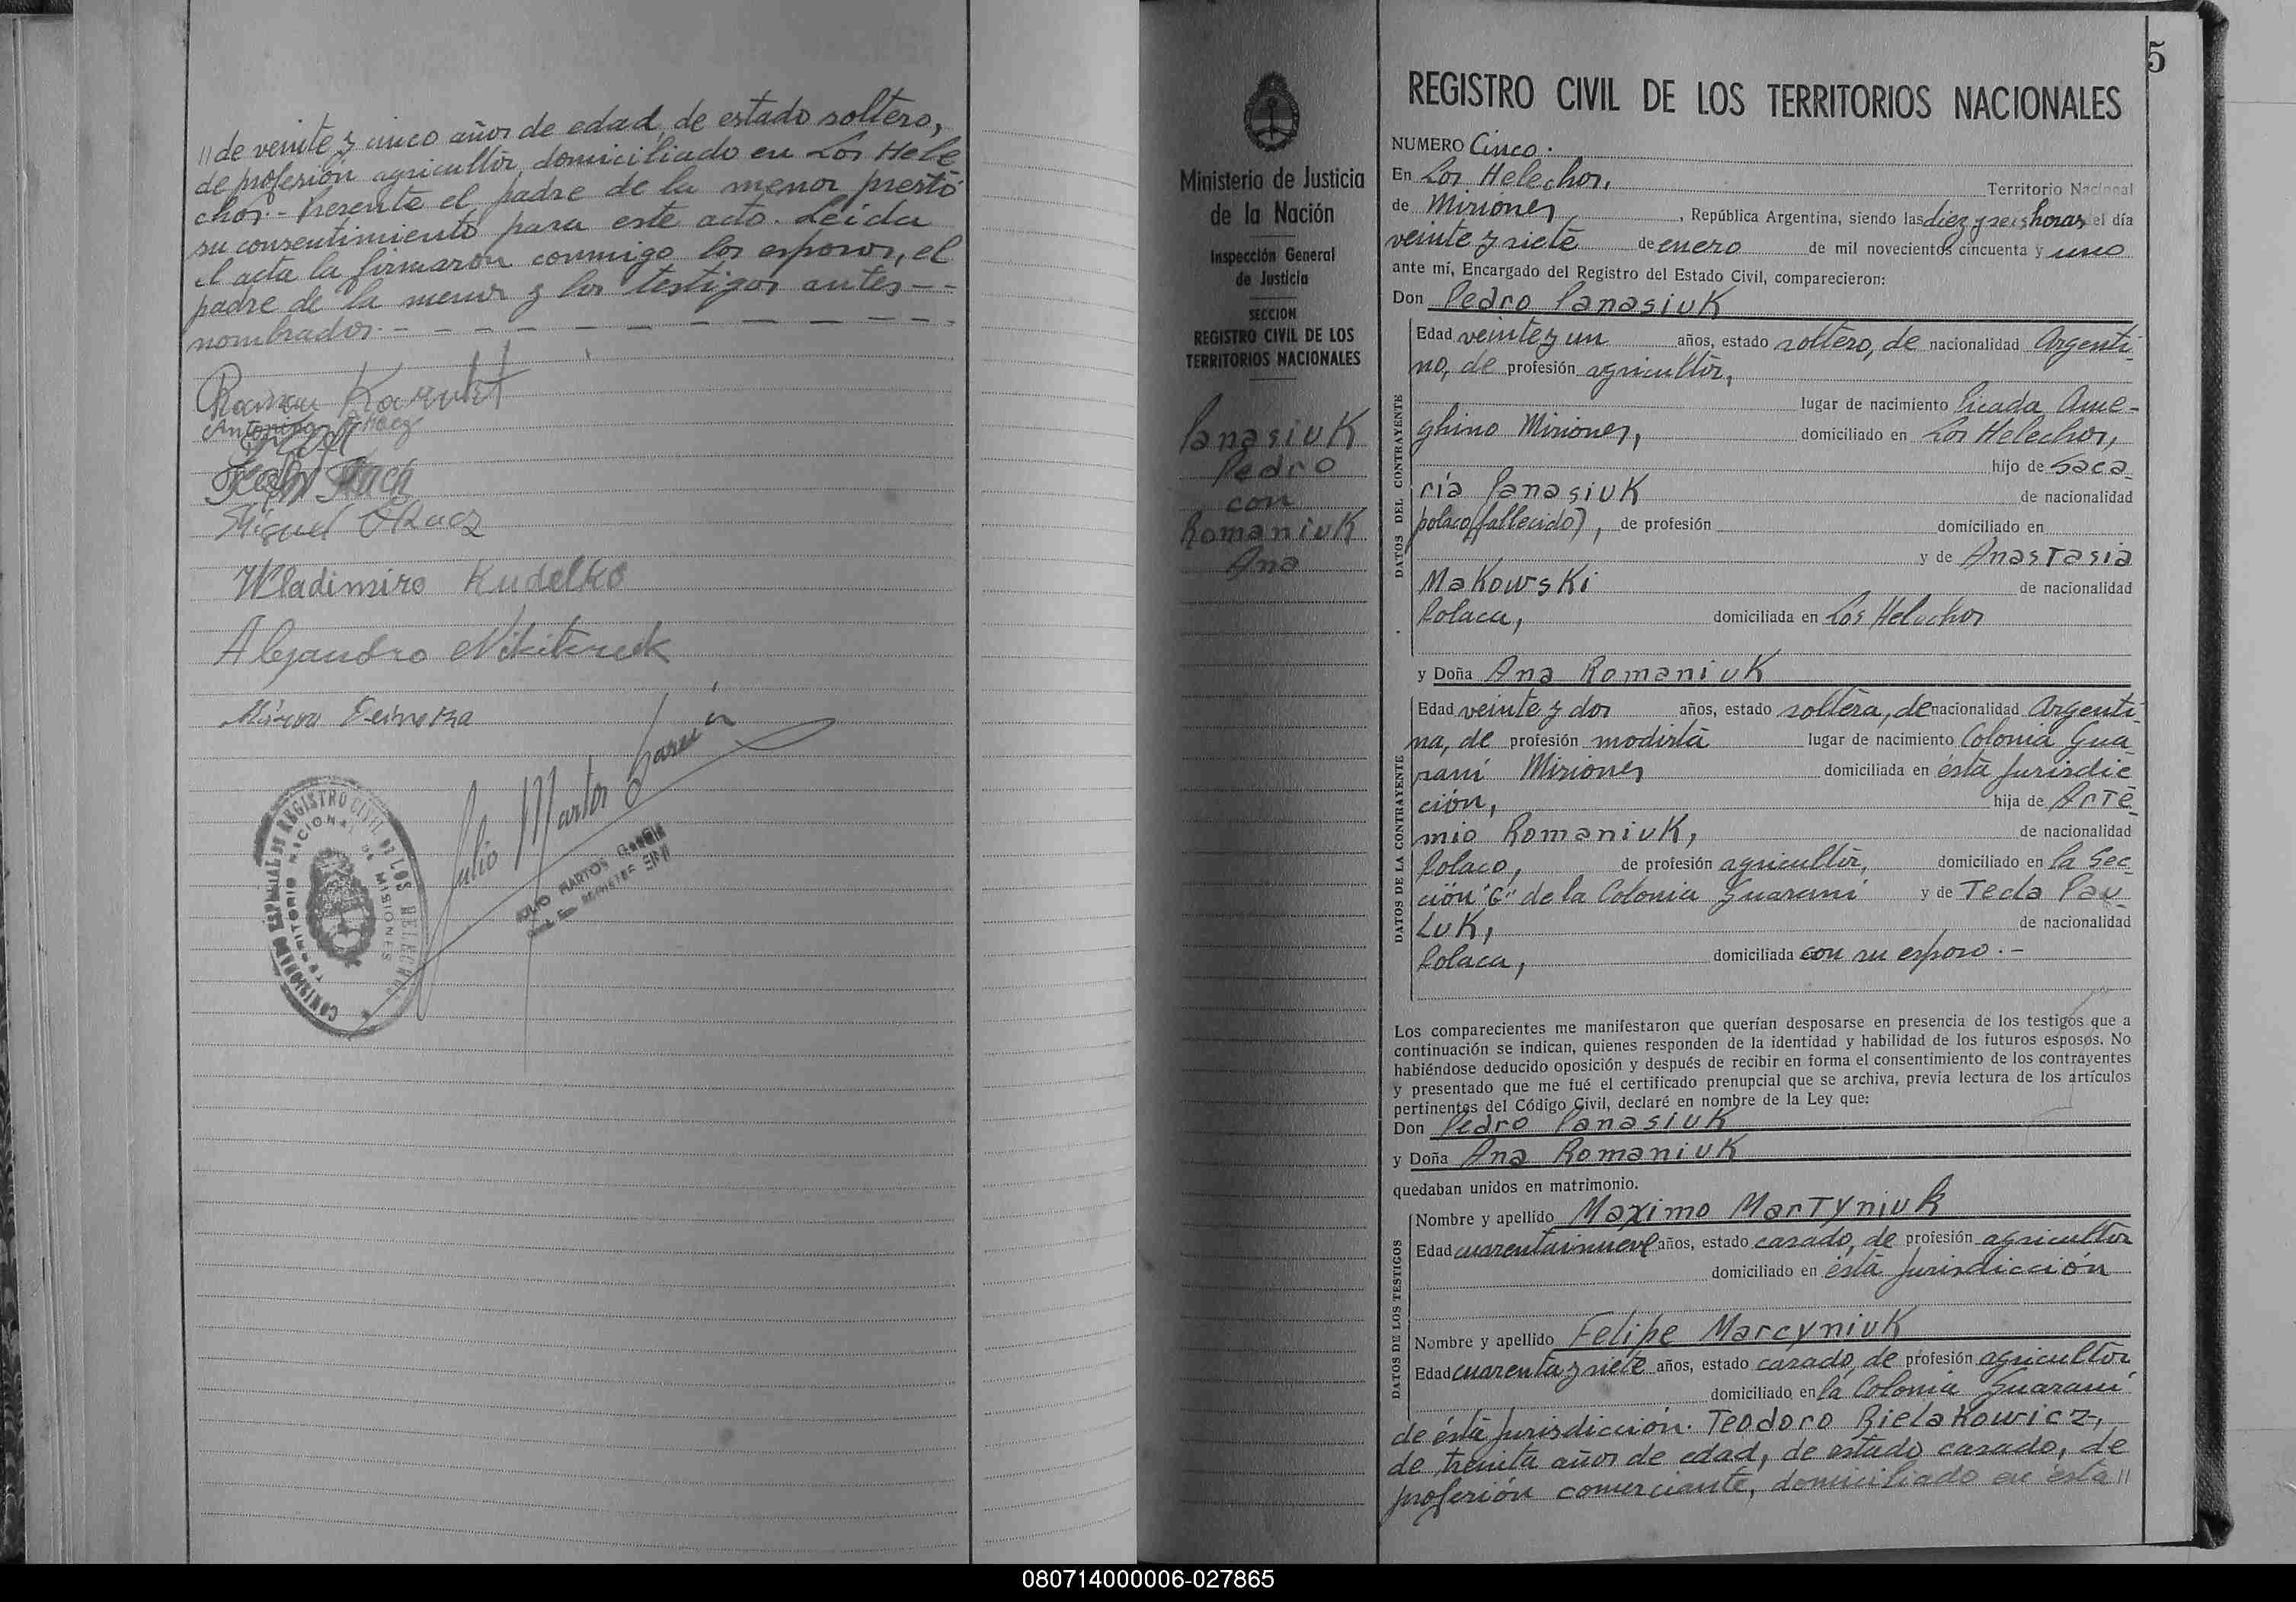 // de veinte y cinco años de edad, de estado soltero,
de profesión agricultor, domiciliado en Los Hele
chos.- Presente el padre de la menor prestó
su consentimiento para este acto. Leida
el acta la firmaron conmigo los esposos, el
padre de la menor y los testigos antes - -
nombrados. - - - - - - - - - -
Miguel
Wladimiro Kudelko
Alejandro
Julio Martos García
REGISTRO CIVIL DE LOS HELECHOS
TERRITORIO NACIONAL DE MISIONES
JULIO MARTOS GARCIA
5
Ministerio de Justicia
de la Nación
Inspección General
de Justicia
SECCION
REGISTRO CIVIL DE LOS
TERRITORIOS NACIONALES
Panasiuk
Pedro
con
Romaniuk
Ana
REGISTRO CIVIL DE LOS TERRITORIOS NACIONALES
NUMERO Cinco.
En Los Helechos, Territorio Nacional
de Misiones, República Argentina, siendo las diez y seis horas del día
veinte y siete de enero de mil novecientos cincuenta y uno
ante mí, Encargado del Registro del Estado Civil, comparecieron:
Don Pedro Panasiuk
DATOS DEL CONTRAYENTE
Edad veinte y un años, estado soltero, de nacionalidad Argenti
no, de profesión agricultor,
lugar de nacimiento Picada Ame-
ghino Misiones, domiciliado en Los Helechos,
hijo de Saca
ría Panasiuk de nacionalidad
polaco (fallecido), de profesión domiciliado en
y de Anastasia
Makowski de nacionalidad
Polaca, domiciliada en Los Helechos
y Doña Ana Romaniuk
DATOS DE LA CONTRAYENTE
Edad veinte y dos años, estado soltera, de nacionalidad Argenti
na, de profesión modista lugar de nacimiento Colonia Gua
raní Misiones domiciliada en ésta Jurisdic
ción, hija de Arté
mio Romaniuk, de nacionalidad
Polaco, de profesión agricultor, domiciliado en la Sec
ción "G" de la Colonia Guaraní y de Tecla Pav
Luk, de nacionalidad
Polaca, domiciliada con su esposo.-
Los comparecientes me manifestaron que querían desposarse en presencia de los testigos que a
continuación se indican, quienes responden de la identidad y habilidad de los futuros esposos. No
habiéndose deducido oposición y después de recibir en forma el consentimiento de los contrayentes
y presentado que me fué el certificado prenupcial que se archiva, previa lectura de los artículos
pertinentes del Código Civil, declaré en nombre de la Ley que:
Don Pedro Panasiuk
y Doña Ana Romaniuk
quedaban unidos en matrimonio.
DATOS DE LOS TESTIGOS
Nombre y apellido Maximo Martyniuk
Edad cuarentainueve años, estado casado, de profesión agricultor
domiciliado en ésta Jurisdicción
Nombre y apellido Felipe Marcyniuk
Edad cuarenta y siete años, estado casado, de profesión agricultor
domiciliado en la Colonia Guaraní
de ésta Jurisdicción. Teodoro Bielakowicz,
de treinta años de edad, de estado casado, de
profesión comerciante, domiciliado en ésta //
080714000006-027865